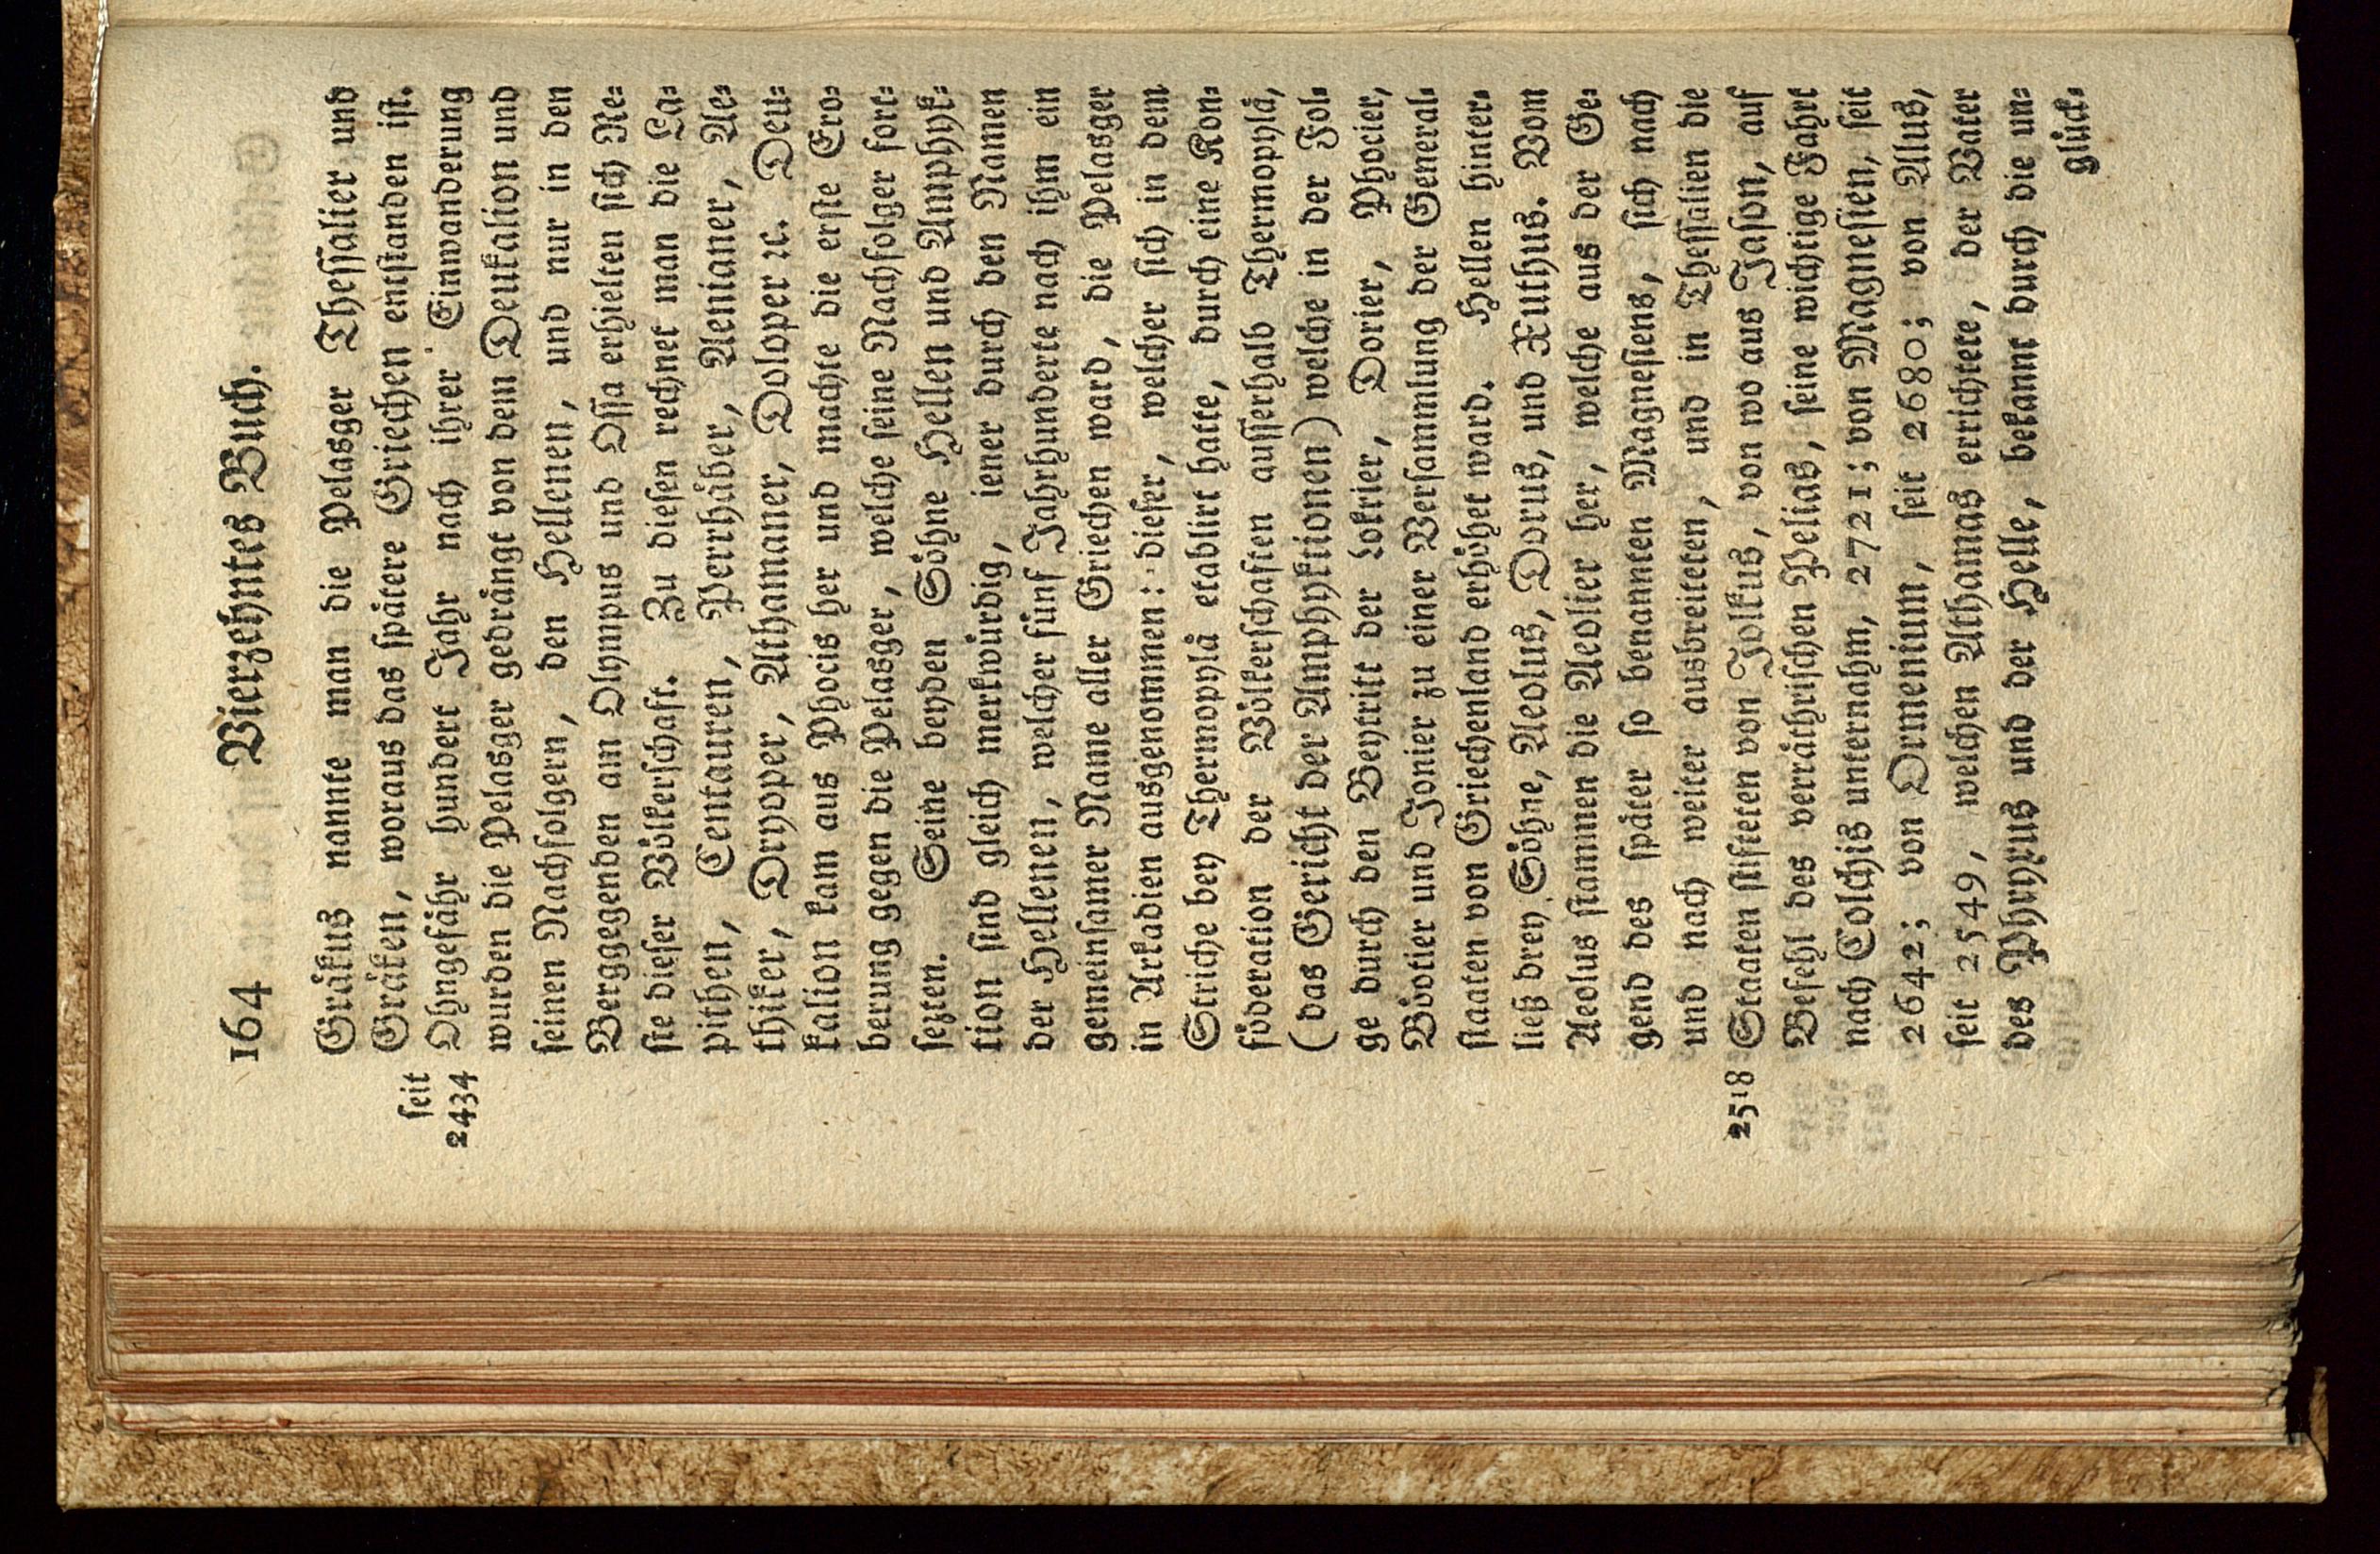 164 Vierzehntes Buch.
Gräkus nannte man die Pelasger Thessalier und
Gräken, woraus das spätere Griechen entstanden ist.
seit
2434
Ohngefähr hundert Jahr nach ihrer Einwanderung
wurden die Pelasger gedrängt von dem Deukalion und
seinen Nachfolgern, den Hellenen, und nur in den
Berggegenden am Olympus und Ossa erhielten sich Re-
ste dieser Völkerschaft. Zu diesen rechnet man die La-
pithen, Centauren, Perrhäber, Aenianer, Ae-
thiker, Dryoper, Athamaner, Doloper ꝛc. Deu-
kalion kam aus Phocis her und machte die erste Ero-
berung gegen die Pelasger, welche seine Nachfolger fort-
sezten. Seine beyden Söhne Hellen und Amphyk-
tion sind gleich merkwürdig, iener durch den Namen
der Hellenen, welcher fünf Jahrhunderte nach ihm ein
gemeinsamer Name aller Griechen ward, die Pelasger
in Arkadien ausgenommen: dieser, welcher sich in dem
Striche bey Thermopylä etablirt hatte, durch eine Kon-
föderation der Völkerschaften ausserhalb Thermopylä,
(das Gericht der Amphyktionen) welche in der Fol-
ge durch den Beytritt der Lokrier, Dorier, Phocier,
Böotier und Jonier zu einer Versammlung der General-
staaten von Griechenland erhöhet ward. Hellen hinter-
ließ drey Söhne, Aeolus, Dorus, und Xuthus. Vom
Aeolus stammen die Aeolier her, welche aus der Ge-
gend des später so benannten Magnesiens, sich nach
und nach weiter ausbreiteten, und in Thessalien die
2518 Staaten stifteten von Jolkus, von wo aus Jason, auf
Befehl des verräthrischen Pelias, seine wichtige Fahrt
nach Colchis unternahm, 2721; von Magnesien, seit
2642; von Ormenium, seit 2680; von Alus,
seit 2549, welchen Athamas errichtete, der Vater
des Phryxus und der Helle, bekannt durch die un-
glück-